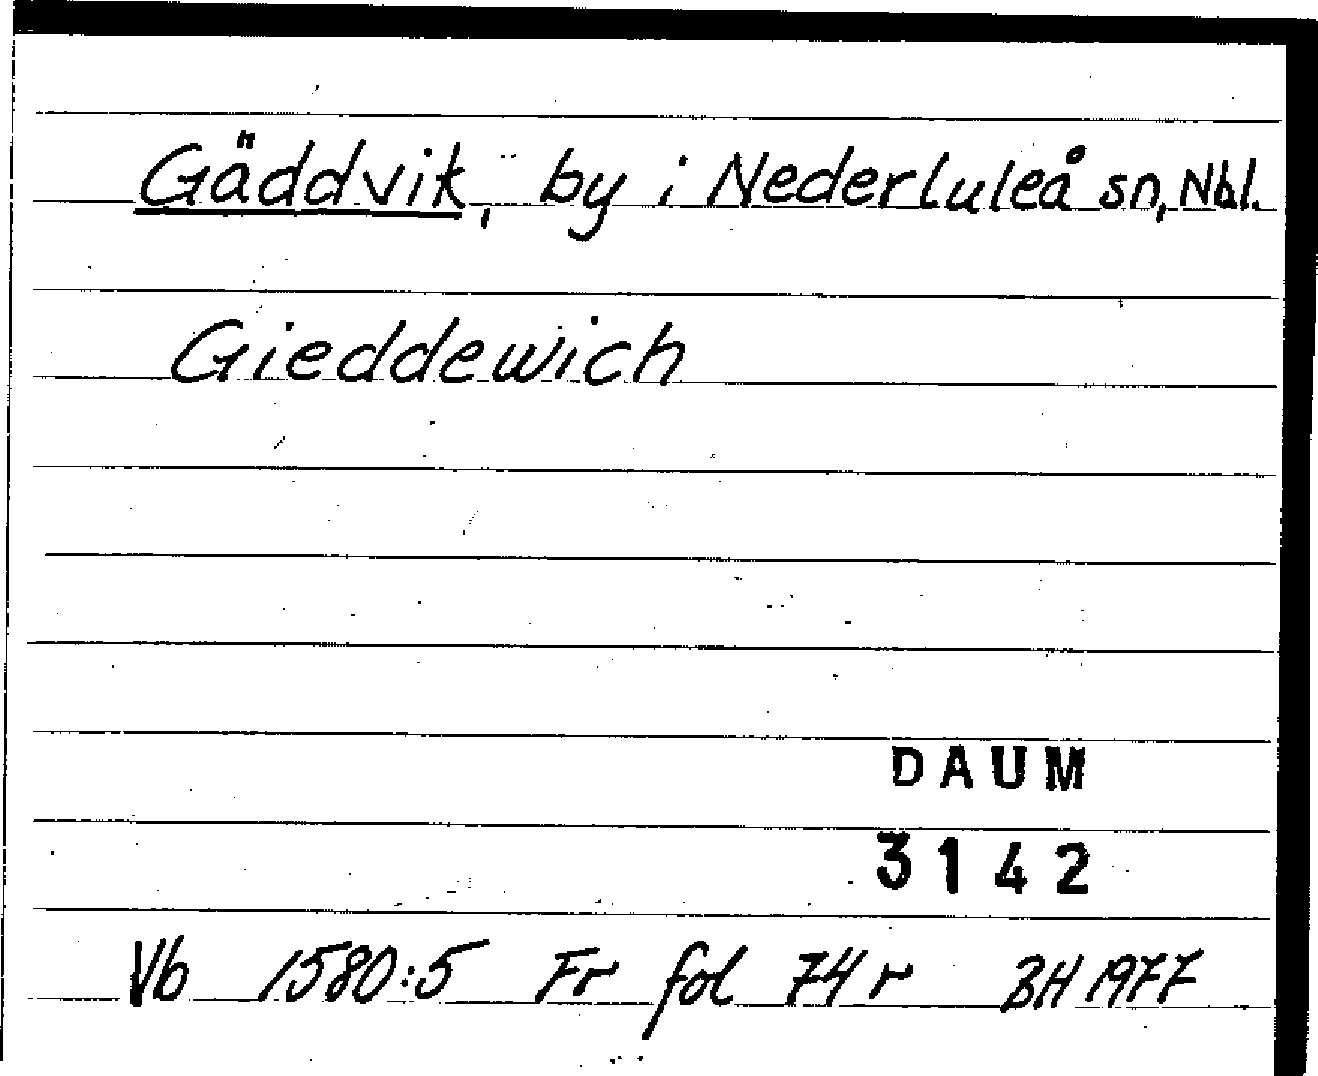 Gäddvik, by i Nederluleå sn, Nbl.
Gieddewich
DAUM
3142
Vb 1580:5 Fr fol 74 r BH 1977